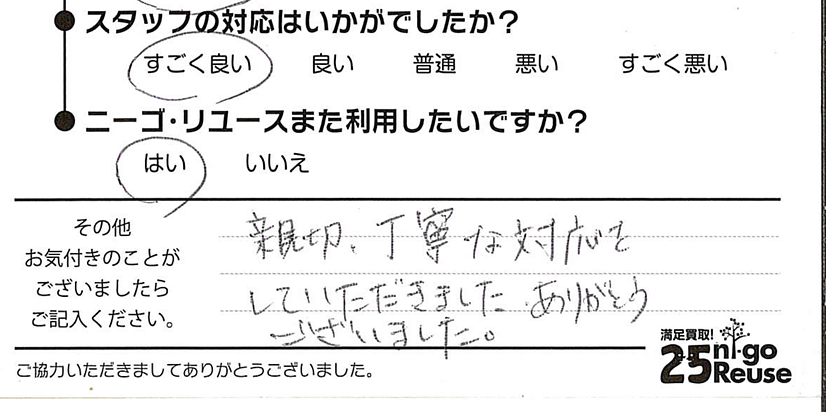 ●スタッフの対応はいかがでしたか？
すごく良い 良い 普通 悪い すごく悪い
●ニーゴ・リユースまた利用したいですか？
はい いいえ
その他
お気付きのことが
ございましたら
ご記入ください。
親切、丁寧な対応を
していただきました ありがとう
ございました。
満足買取!
25 ni-go
Reuse
ご協力いただきましてありがとうございました。